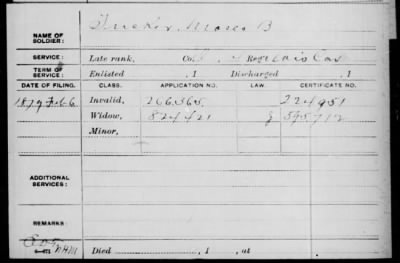 NAME OF SOLDIER: Tucker, Moses B
SERVICE: Late rank, Co. Reg't Cav
TERM OF SERVICE: Enlisted , 1 Discharged , 1
DATE OF FILING. CLASS. APPLICATION NO. LAW. CERTIFICATE NO.
1879 Feb 6 Invalid, 266.365 224951
Widow, 824421 595712
Minor,
ADDITIONAL SERVICES:
REMARKS:
Died , 1 , at